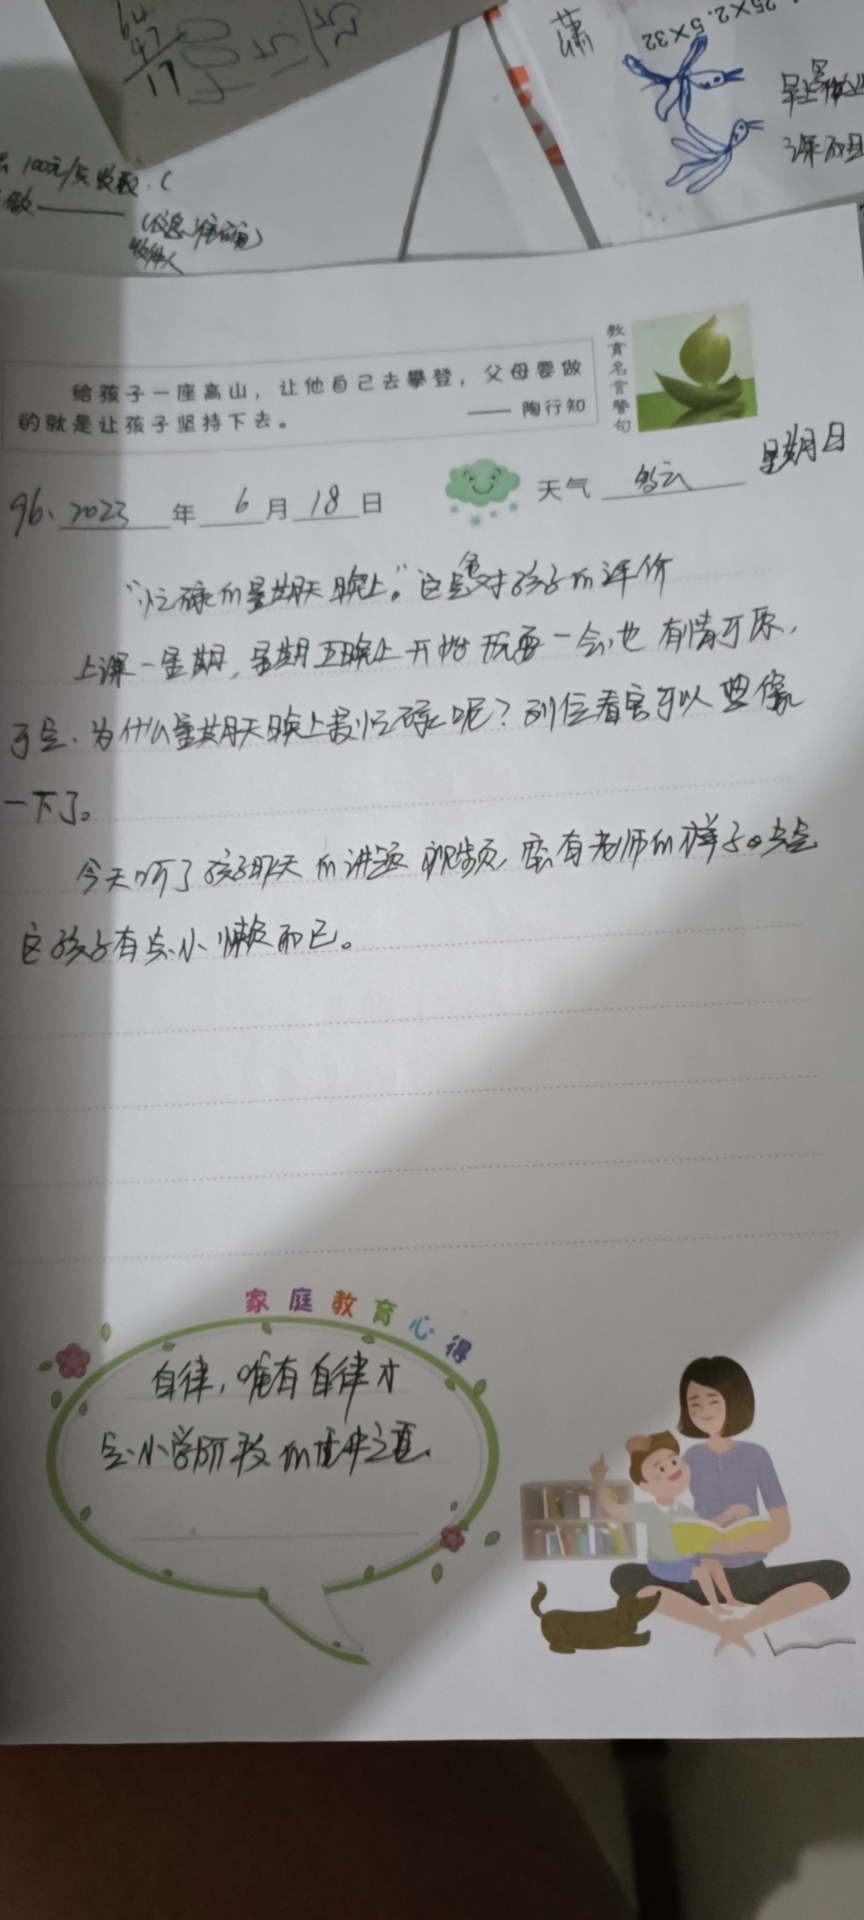 64
47
17
400
15
萧
25×2.5×32
100元/
做
收件人
教育名言警句
给孩子一座高山，让他自己去攀登，父母要做
的就是让孩子坚持下去。
—— 陶行知
96、2023年6月18日
天气 多云 星期日
“忙碌的星期天晚上。”这是我对孩子的评价
上课一星期，星期五晚上开始玩耍一会，也有情可原，
可是、为什么星期天晚上最忙碌呢？列位看官可以想像
一下了。
今天听了孩子那天的讲题视频，蛮有老师的样子。只是
这孩子有点小懒而已。
家庭教育心得
自律，唯有自律才
是小学阶段的重中之重。